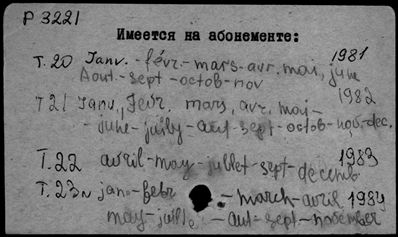 P 3221
Имеется на абонементе:
T. 20 Janv. - févr - mars - avr. mai, june 1981
Aout - sept - octob - nov
T 21 Janv., Fevr. mars, avr. mai - 1982
- june - juily - aut - sept - octob - nov - dec.
T. 22 avril - may - juillet - sept - decemb 1983
T. 23 jan - febr - march - avril 1984
may - juille - aut - sept - november